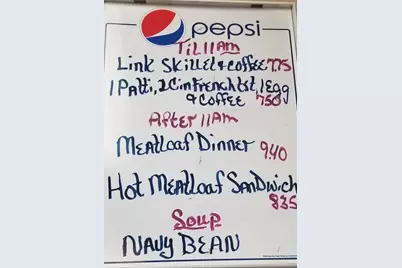 pepsi
TIL 11 AM
Link Skillet & Coffee 7.75
1 Patti, 2 Cin French tst, 1 Egg
& Coffee 7.50
After 11 AM
Meatloaf Dinner 9.40
Hot Meatloaf Sandwich
8.35
Soup
Navy Bean